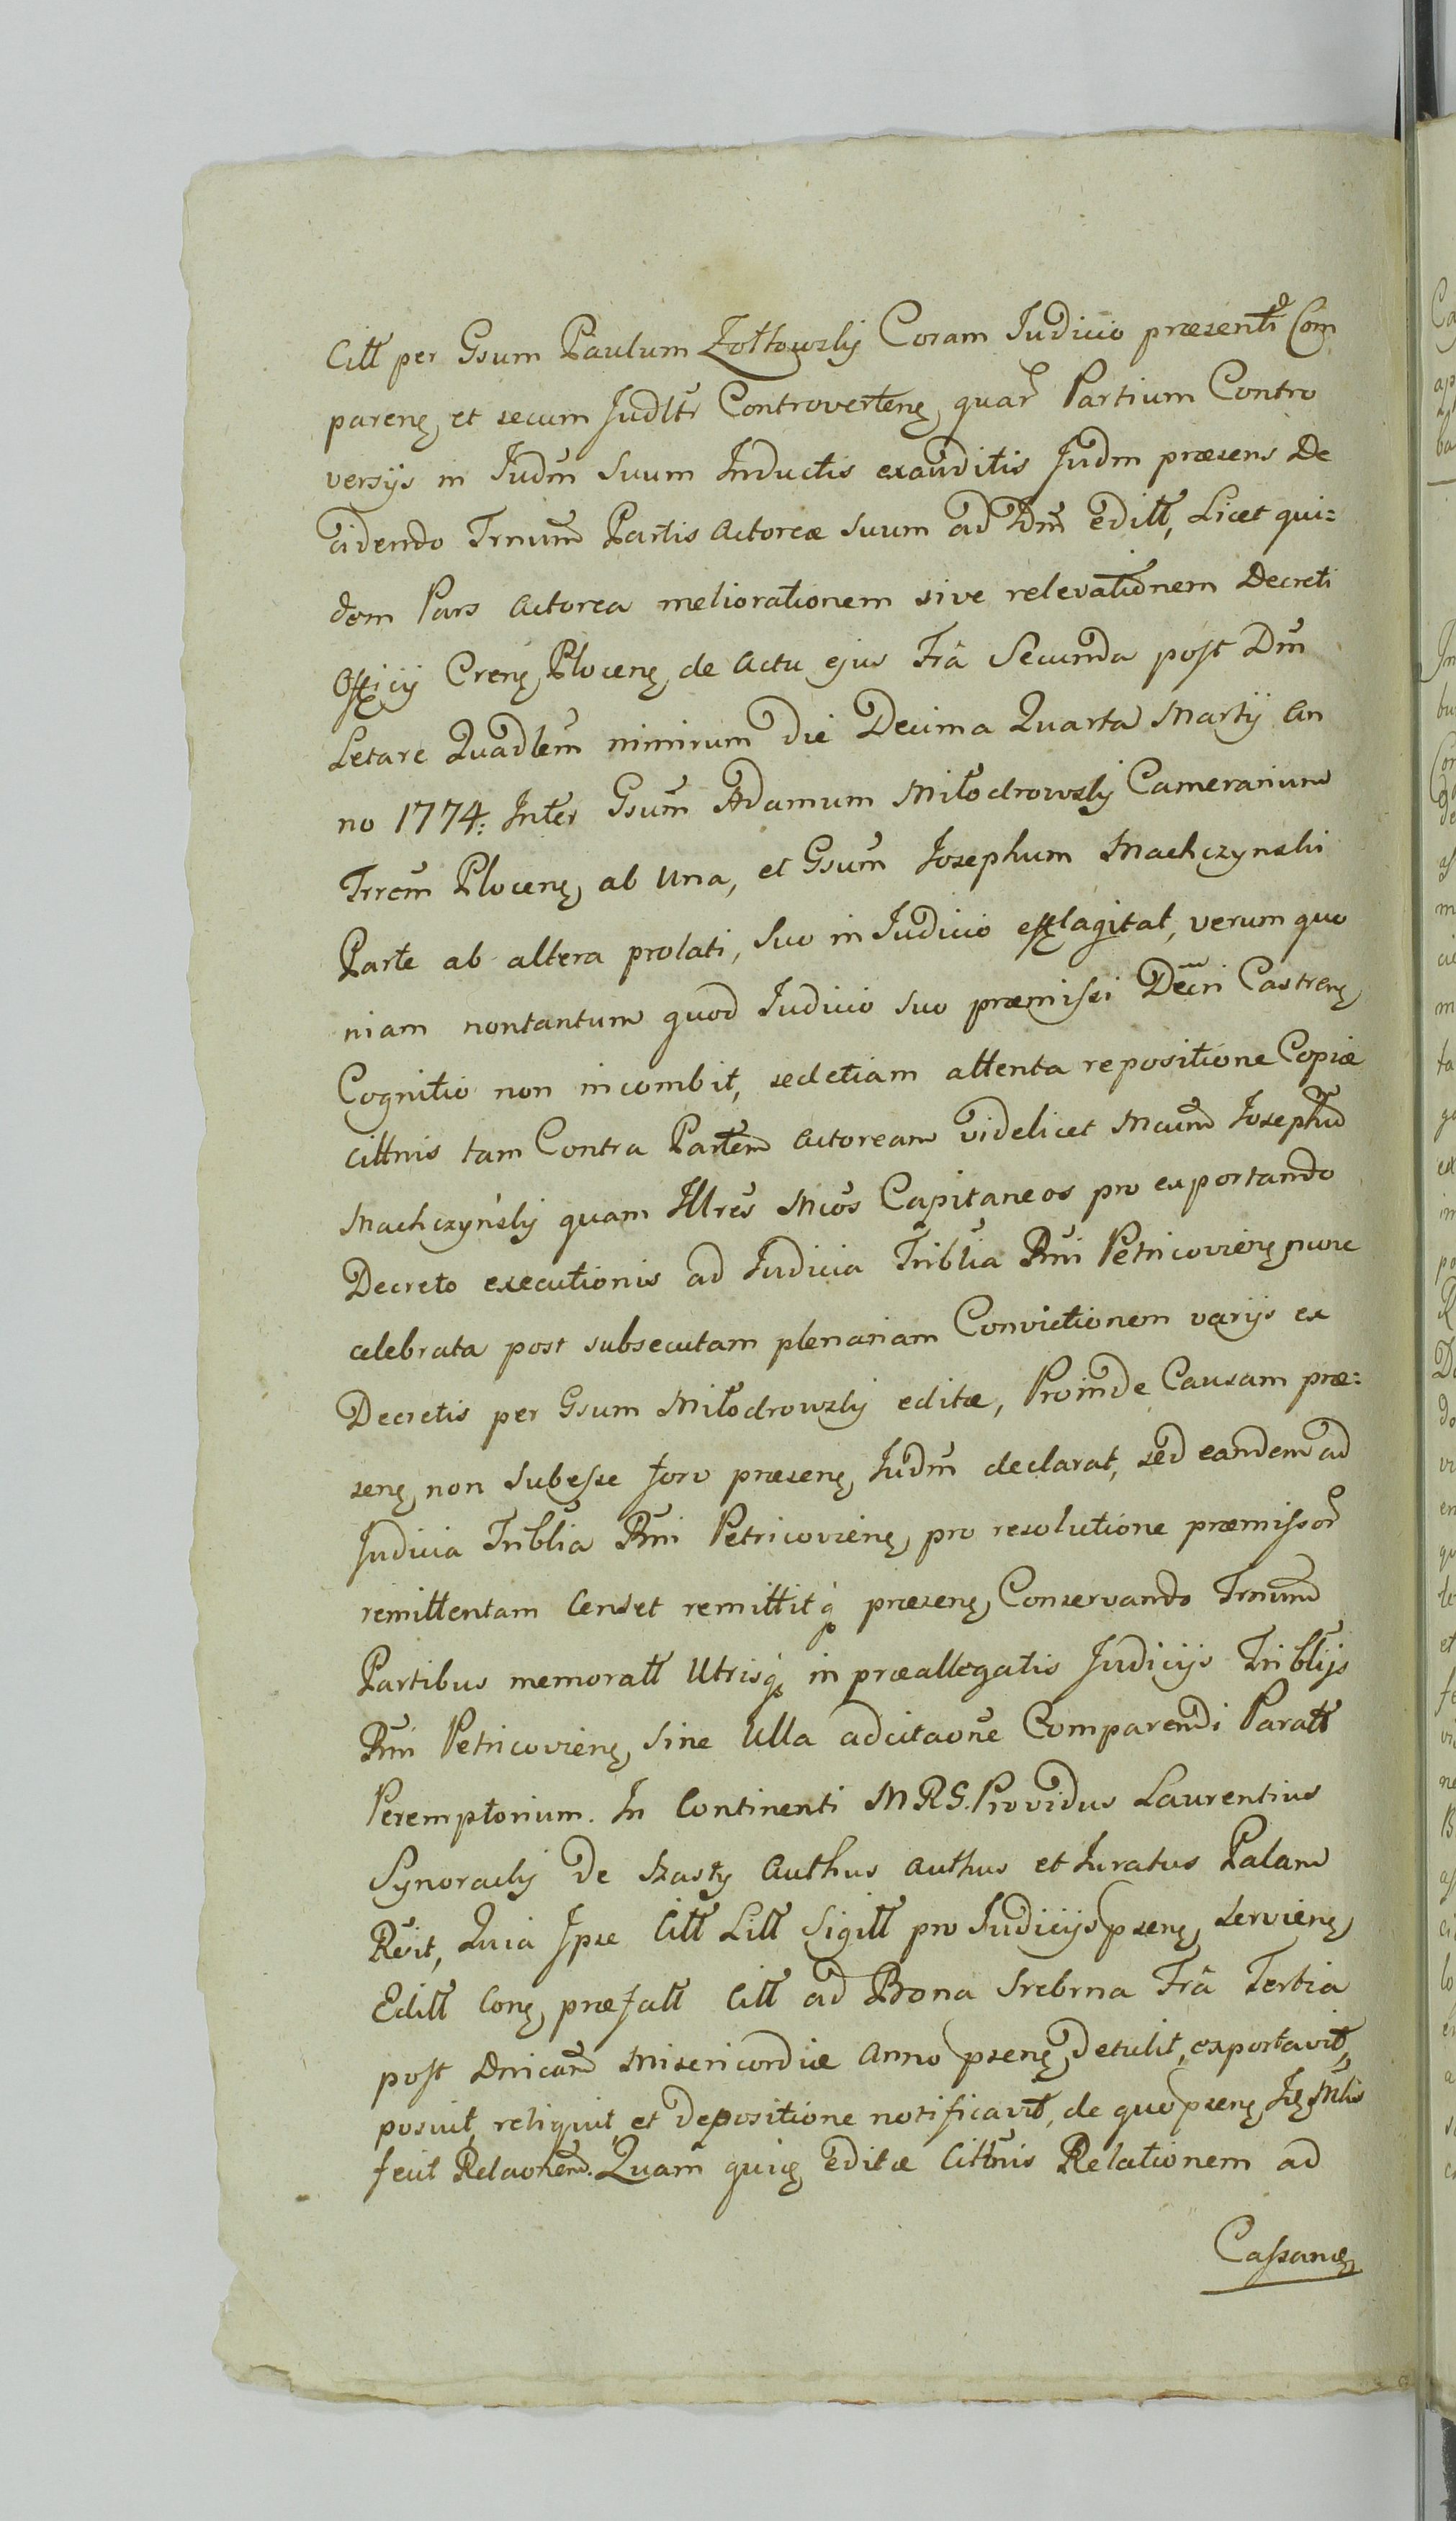 Citt per Gsum Paulum Zołtowsky Coram Judicio præsenti Com
parenę et secum Judltr Controvertenę, quar Partium Contro
versÿs in Judm̃ Suum Inductis exauditis Judm præsens De
cidendo Trnum Partis Actoreæ Suum ad Dm̃ editt, Licet qui=
dem Pars Actorea meliorationem sive relevationem Decreti
Officÿ Crenę, Plocenę, de Actu ejus Frâ Secunda post Dm̃
Letare Quadlem̃ nimirum die Decima Quarta Martÿ An
no 1774: Inter Gsum̃ Adamum Miłodrowsky Camerarium
Trrem̃ Plocenę, ab Una, et Gsum̃ Josephum Machczynski
Parte ab altera prolati, Suo in Judicio efflagitat, verum quo
niam nontantum quod Judicio suo præmissi Decri Castrenę
Cognitio non incombit, sedetiam attenta repositione Copiæ
cittnis tam Contra Partem Actoream videlicet Mcum Josephũ
Machczyńsky quam Illres Mcos Capitaneos pro exportando
Decreto executionis ad Judicia Triblia Rñi Petricovienę nunc
celebrata post subsecutam plenariam Convictionem varÿs ex
Decretis per Gsum Miłodrowsky editæ, Proinde Causam præ=
senę, non subesse foro præsenę, Judm̃ declarat, sed eandem ad
Judicia Triblia Rñi Petricovienę, pro resolutione præmissor
remittentam Censet remittitq́ præsenę, Conservando Trnum
Partibus memoratt Utrisq́ in præallegatis Judicÿs Triblÿs
Rñi Petricovienę, Sine Ulla adcitaone Comparendi Paratt
Peremptorium. In Continenti MRS. Providus Laurentius
Synoracky de Szasty Authus authus et Juratus Palam
Reit, Quia Ipse Citt Litt Sigitt pro Judicÿs psenę, servienę,
Editt Conę, præfatt Citt ad Bona Srebrna Frâ Tertia
post Dnicam Misericordiæ Anno psenę, detulit, exportavit,
posuit, reliquit, et depositione notificavit, de quo psenę, Hę, Mlis
fecit Relaonem. Quam̃ quię editæ Cittnis Relationem ad
Cassanę,